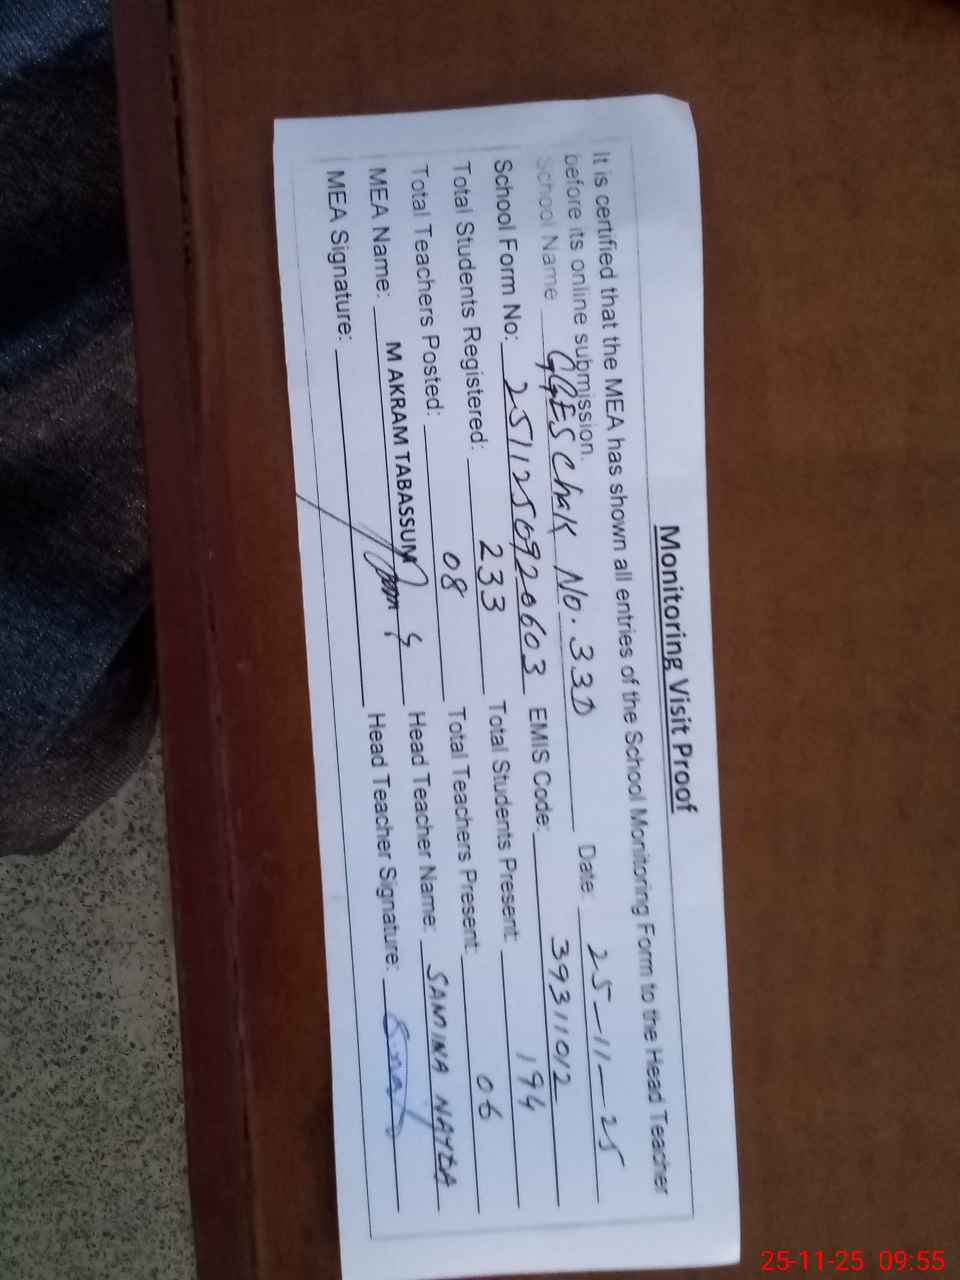 Monitoring Visit Proof
It is certified that the MEA has shown all entries of the School Monitoring Form to the Head Teacher
before its online submission.
School Name GGES Chak No. 33D Date: 25-11-25
School Form No: 2511256920603 EMIS Code: 39311012
Total Students Registered: 233 Total Students Present: 194
Total Teachers Posted: 08 Total Teachers Present: 06
MEA Name: M AKRAM TABASSUM Head Teacher Name: SAMINA NAYDA
MEA Signature: Head Teacher Signature:
25-11-25 09:55